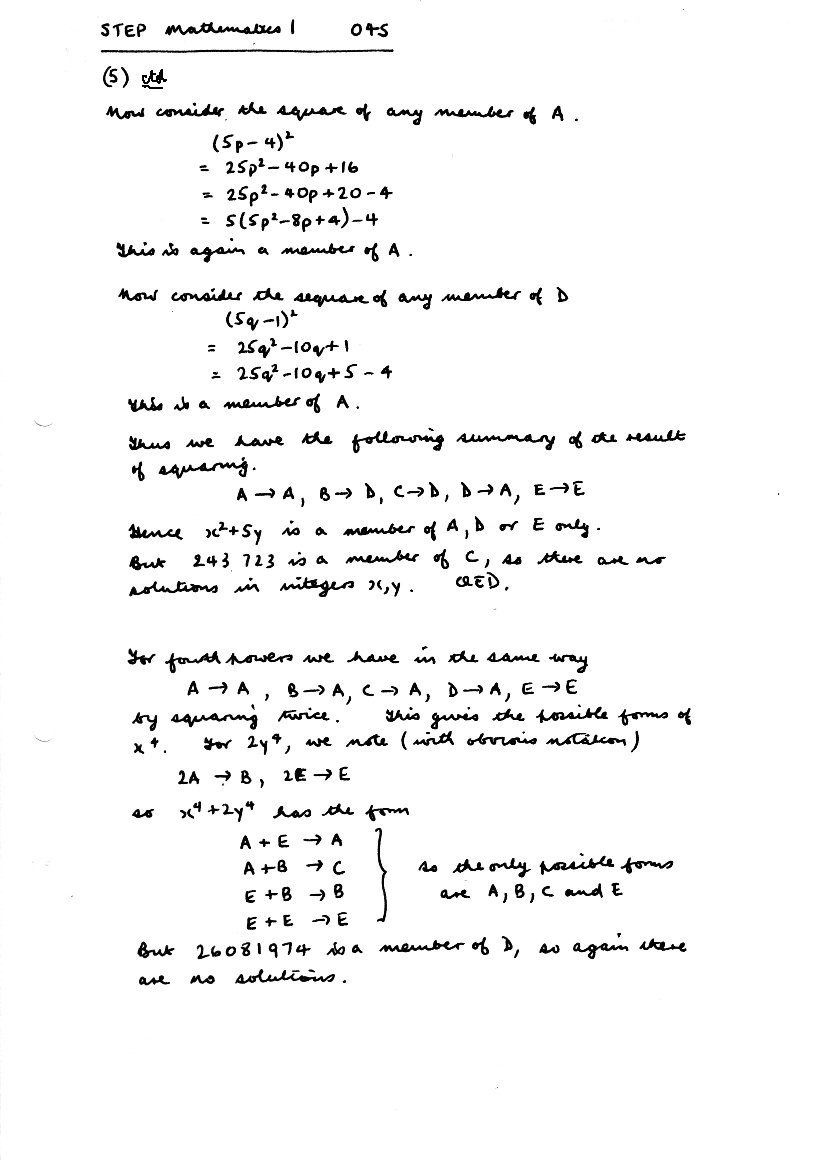 STEP Mathematics 1 04S
(5) ctd
Now consider the square of any member of A.
(5p-4)²
= 25p²-40p+16
= 25p²-40p+20-4
= 5(5p²-8p+4)-4
This is again a member of A.
Now consider the sequare of any member of D
(5q-1)²
= 25q²-10q+1
= 25q²-10q+5-4
This is a member of A.
Thus we have the following summary of the result
of squaring.
A→A, B→D, C→D, D→A, E→E
Hence x²+5y is a member of A, D or E only.
But 243 723 is a member of C, so there are no
solutions in integers x,y. QED.
For fourth powers we have in the same way
A→A, B→A, C→A, D→A, E→E
by squaring twice. This gives the possible forms of
x⁴. For 2y⁴, we note (with obvious notation)
2A→B, 2E→E
so x⁴+2y⁴ has the form
A+E→A
A+B→C so the only possible forms
E+B→B are A, B, C and E
E+E→E
But 26081974 is a member of D, so again there
are no solutions.